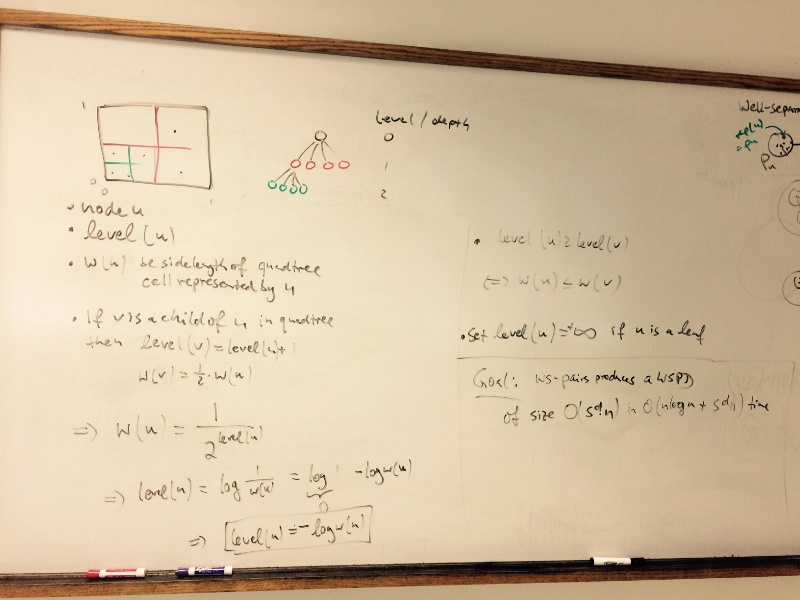 1
Level / depth
0
1
2
1
0
0
• node u
• level (u)
• w(u) be sidelength of quadtree
cell represented by u
• If v is a child of u in quadtree
then level(v) = level(u)+1
w(v) = 1/2 · w(u)
=> w(u) = 1 / 2^level(u)
=> level(u) = log 1/w(u) = log 1 - log w(u)
0
=> level(u) = - log w(u)
• level (u) ≥ level(v)
<=> w(u) ≤ w(v)
• Set level(u) = +∞ if u is a leaf
Goal: ws-pairs produces a WSPD
of size O(s^d n) in O(n log n + s^d n) time
Well-separa
rep(u)
= Pu
Pu